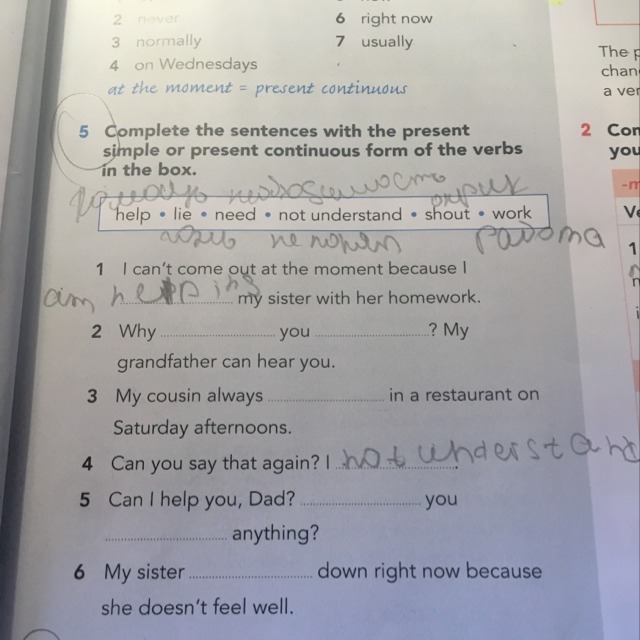 2 never 6 right now
3 normally 7 usually
4 on Wednesdays
at the moment = present continuous
The p
chan
a ver
5 Complete the sentences with the present
simple or present continuous form of the verbs
in the box.
2 Con
you
-m
необходимость
help • lie • need • not understand • shout • work
не понял работа
1 I can't come out at the moment because I
am helping my sister with her homework.
2 Why you ? My
grandfather can hear you.
3 My cousin always in a restaurant on
Saturday afternoons.
4 Can you say that again? I not understand.
5 Can I help you, Dad? you
anything?
6 My sister down right now because
she doesn't feel well.